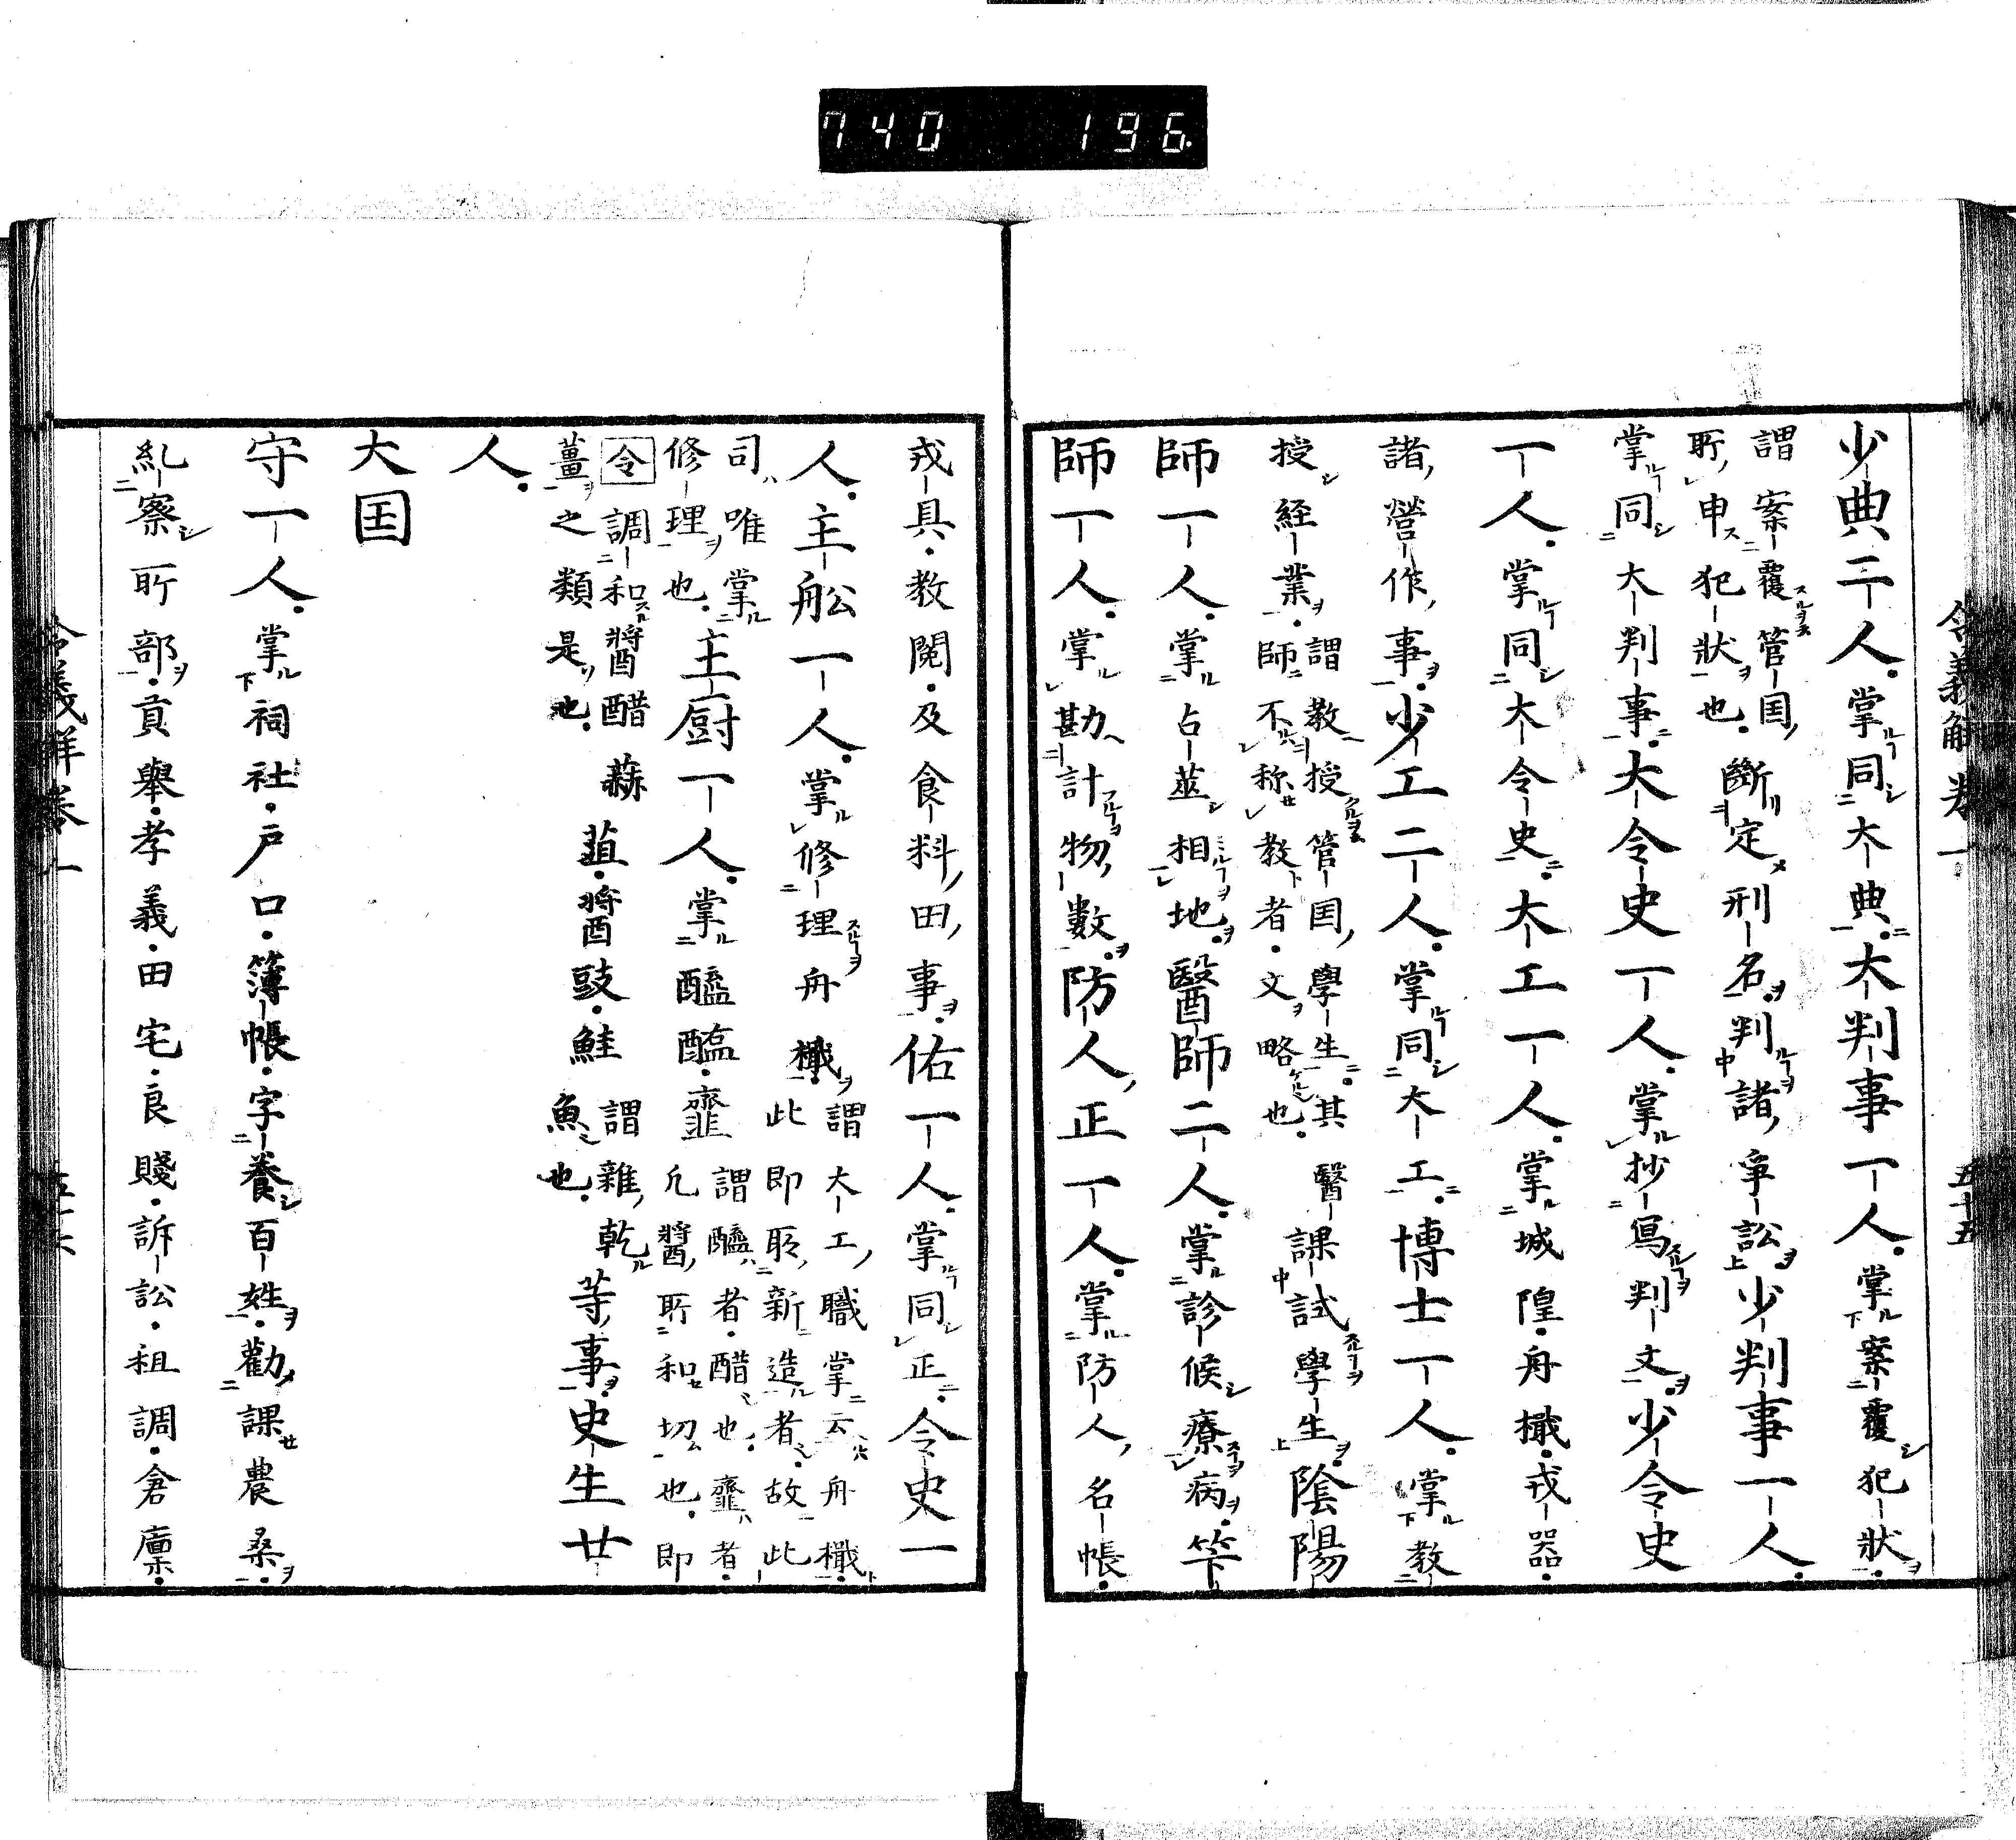 740 196
令義解卷一
五十五
少典二人。掌同大典。大判事一人。掌案覆犯状。
謂案覆管国
所申犯状也。
斷定刑名。判諸争訟。少判事一人。
掌同大判事。大令史一人。掌抄写判文。少令史
一人。掌同大令史。大工一人。掌城隍。舟檝。戎器。
諸営作事。少工二人。掌同大工。博士一人。掌教
授経業。
謂教授管国学生。其
師不称教者。文略也。
課試学生。陰陽
師一人。掌占筮相地。醫師二人。掌診候療病。竿
師一人。掌勘計物數。防人正一人。掌防人名帳。
戎具。教閲。及食料田事。佑一人。掌同正。令史一
人。主舩一人。掌修理舟檝。
謂大工職掌云舟檝。
此即取新造者。故此
司唯掌
修理也。
主厨一人。掌醯醢。韲
謂醯者。醋也。韲者。
凡醬所和切也。即
令調和醬醋
薑之類是也。
葅。醬豉。鮭
謂雜乾
魚也。
等事。史生廿
人。
大国
守一人。掌祠社。戸口。簿帳。字養百姓。勸課農桑。
糺察所部。貢舉。孝義。田宅。良賤。訴訟。租調。倉廩。